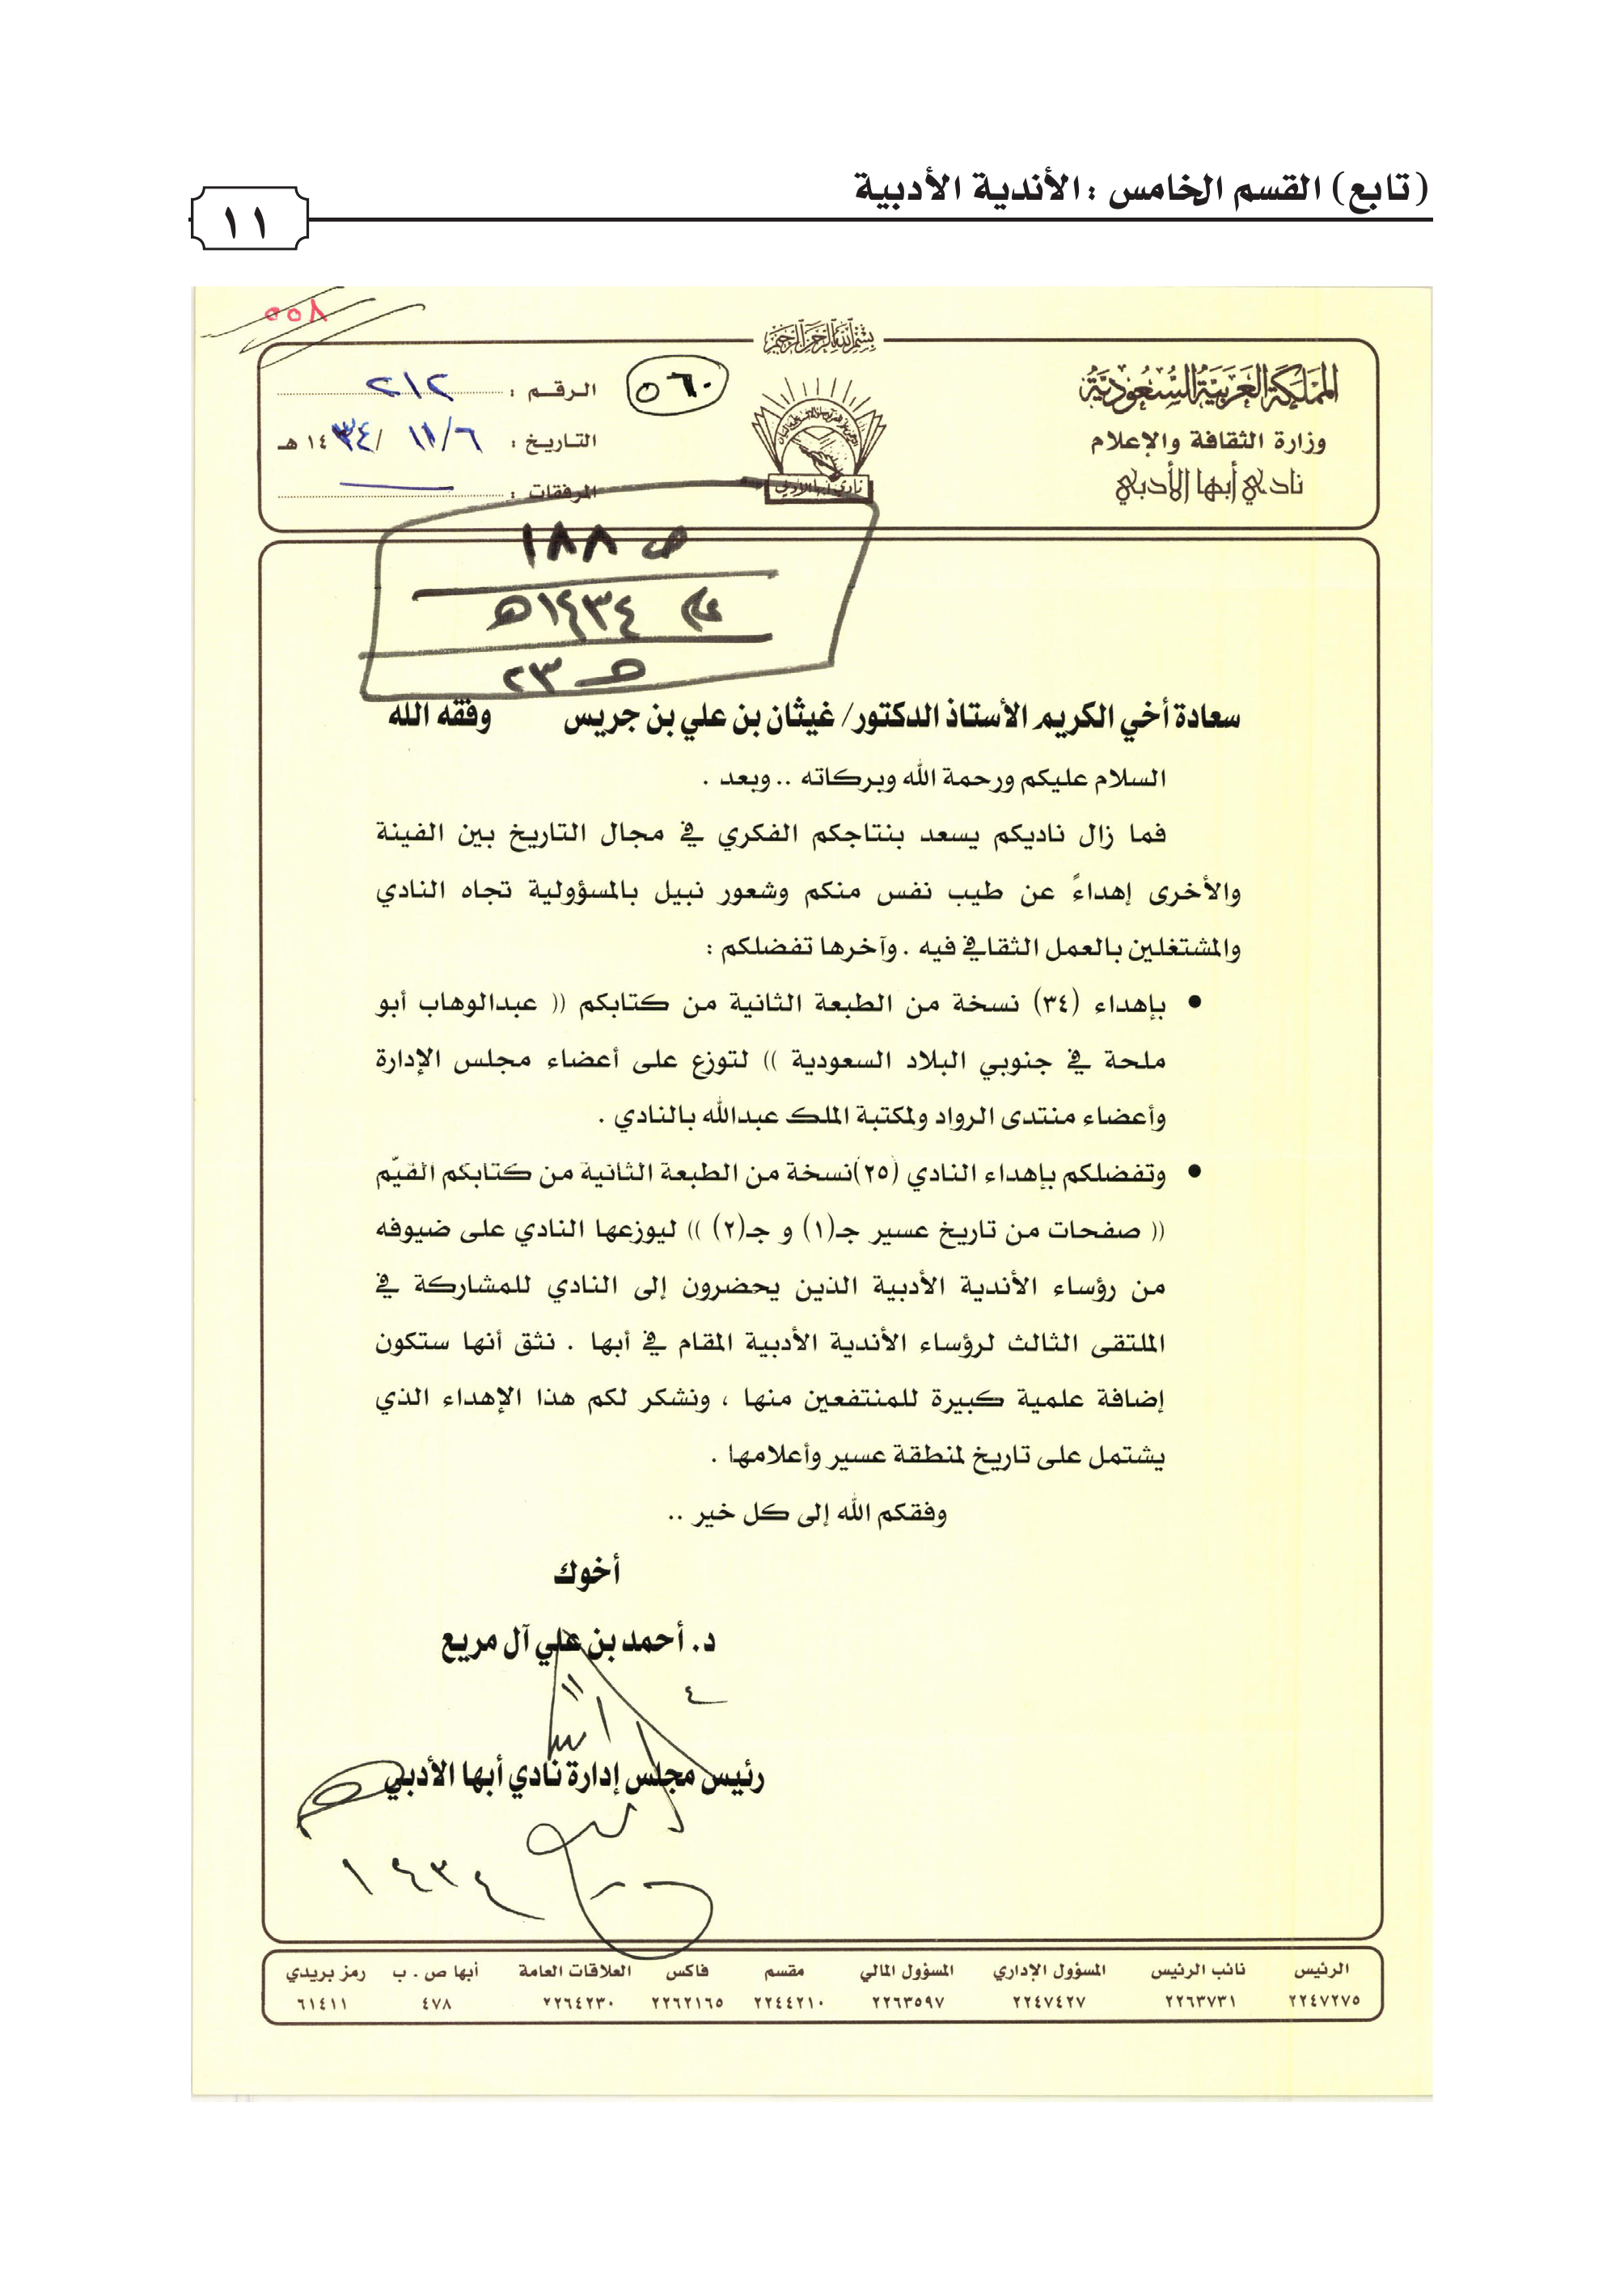 (تابع) القسم الخامس : الأندية الأدبية
١١
٥٥٨
بسم الله الرحمن الرحيم
المملكة العربية السعودية
وزارة الثقافة والإعلام
نادي أبها الأدبي
نادي أبها الأدبي
٥٦٠
الرقم : ٢١٢
التاريخ : ١١/٦ /١٤٣٤ هـ
المرفقات :
ص ١٨٨
١٤٣٤هـ
٢٣
سعادة أخي الكريم الأستاذ الدكتور/ غيثان بن علي بن جريس وفقه الله
السلام عليكم ورحمة الله وبركاته .. وبعد .
فما زال ناديكم يسعد بنتاجكم الفكري في مجال التاريخ بين الفينة
والأخرى إهداءً عن طيب نفس منكم وشعور نبيل بالمسؤولية تجاه النادي
والمشتغلين بالعمل الثقافي فيه . وآخرها تفضلكم :
• بإهداء (٣٤) نسخة من الطبعة الثانية من كتابكم (( عبدالوهاب أبو
ملحة في جنوبي البلاد السعودية )) لتوزع على أعضاء مجلس الإدارة
وأعضاء منتدى الرواد ولمكتبة الملك عبدالله بالنادي .
• وتفضلكم بإهداء النادي (٢٥)نسخة من الطبعة الثانية من كتابكم القيّم
(( صفحات من تاريخ عسير جـ(١) و جـ(٢) )) ليوزعها النادي على ضيوفه
من رؤساء الأندية الأدبية الذين يحضرون إلى النادي للمشاركة في
الملتقى الثالث لرؤساء الأندية الأدبية المقام في أبها . نثق أنها ستكون
إضافة علمية كبيرة للمنتفعين منها ، ونشكر لكم هذا الإهداء الذي
يشتمل على تاريخ لمنطقة عسير وأعلامها .
وفقكم الله إلى كل خير ..
أخوك
د. أحمد بن علي آل مريع
رئيس مجلس إدارة نادي أبها الأدبي
١٤٣٤
الرئيس نائب الرئيس المسؤول الإداري المسؤول المالي مقسم فاكس العلاقات العامة أبها ص . ب رمز بريدي
٢٢٤٧٢٧٥ ٢٢٦٣٧٣١ ٢٢٤٧٤٢٧ ٢٢٦٣٥٩٧ ٢٢٤٤٢١٠ ٢٢٦٢١٦٥ ٢٢٦٤٢٣٠ ٤٧٨ ٦١٤١١